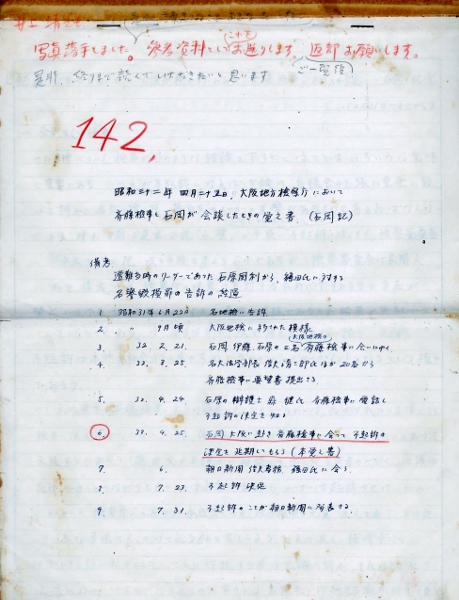 井上 靖先生
写真落手しました。参考資料としてこれをお送りします 返却お願いします。
ご一覧後
是非、終りまで読んでいただきたいと思います
142.
昭和三十二年 四月二十五日、大阪地方検察庁において
斉藤検事と石岡が会談したときの覚之書 (石岡記)
備考
遭難当時のリーダーであった石原国利から、篠田氏に対する
名誉毀損罪の告訴の経過
1. 昭和31年6月22日 名地検に告訴
2. 〃 9月頃 大阪地検に移された模様
3. 32. 2. 21. 石岡 伊藤 石原の三名 斉藤検事に会いにゆく
(大阪地検の)
4. 32. 3. 25. 名大法学部長 信夫清三郎氏ほか20名から
斉藤検事に要望書提出する
5. 32. 4. 24. 石原の弁護士 氏 斉藤検事に電話し
不起訴の決定を知る
6. 32. 4. 25. 石岡 大阪に赴き 斉藤検事に会って 不起訴の
決定を延期してもらう (本覚之書)
7. 6. 朝日新聞 信夫 篠田氏に会う
8. 7. 23. 不起訴 決定
9. 7. 31. 不起訴のことが朝日新聞に発表する.